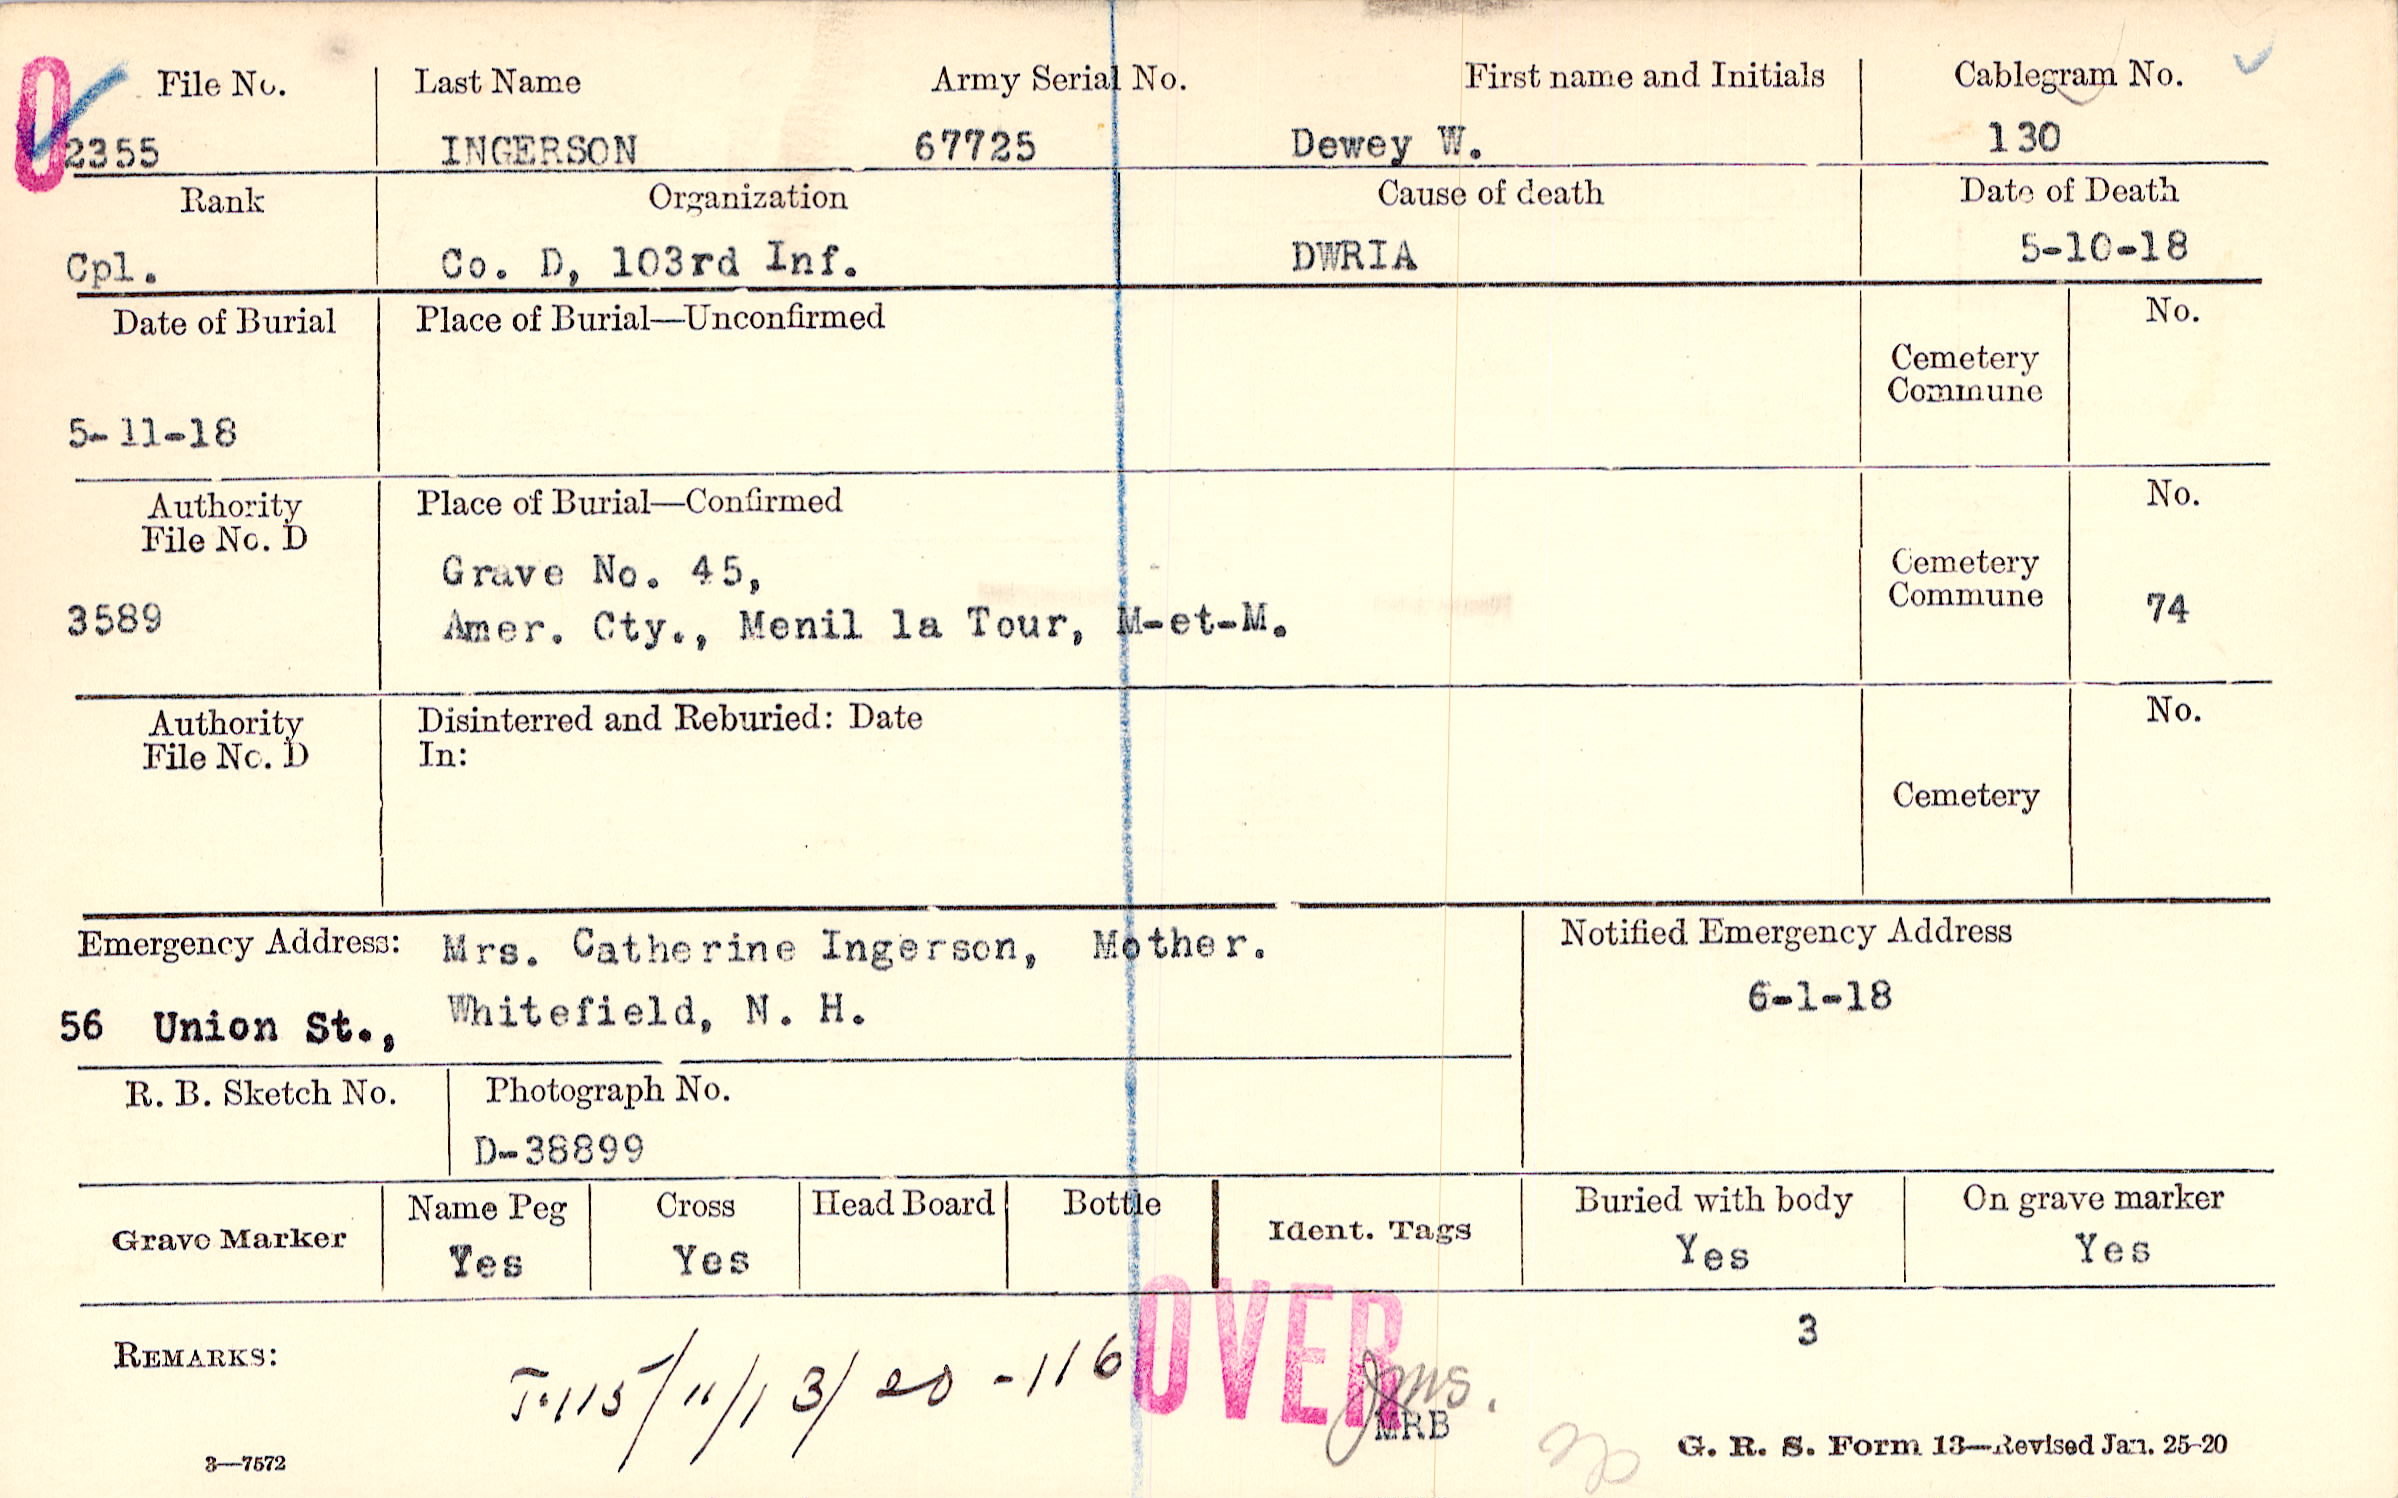 0
File No. Last Name Army Serial No. First name and Initials Cablegram No.
2355 INGERSON 67725 Dewey W. 130
Rank Organization Cause of death Date of Death
Cpl. Co. D, 103rd Inf. DWRIA 5-10-18
Date of Burial Place of Burial—Unconfirmed No.
Cemetery
Commune
5-11-18
Authority Place of Burial—Confirmed No.
File No. D
Grave No. 45, Cemetery
Commune
3589 Amer. Cty., Menil la Tour, M-et-M. 74
Authority Disinterred and Reburied: Date No.
File No. D In:
Cemetery
Emergency Address: Mrs. Catherine Ingerson, Mother. Notified Emergency Address
6-1-18
56 Union St., Whitefield, N. H.
R. B. Sketch No. Photograph No.
D-38899
Grave Marker Name Peg Cross Head Board Bottle Ident. Tags Buried with body On grave marker
Yes Yes Yes Yes
OVER
3
REMARKS: T-115/11/13/20 -116
Jms.
MRB
3—7572 G. R. S. Form 13—Revised Jan. 25-20